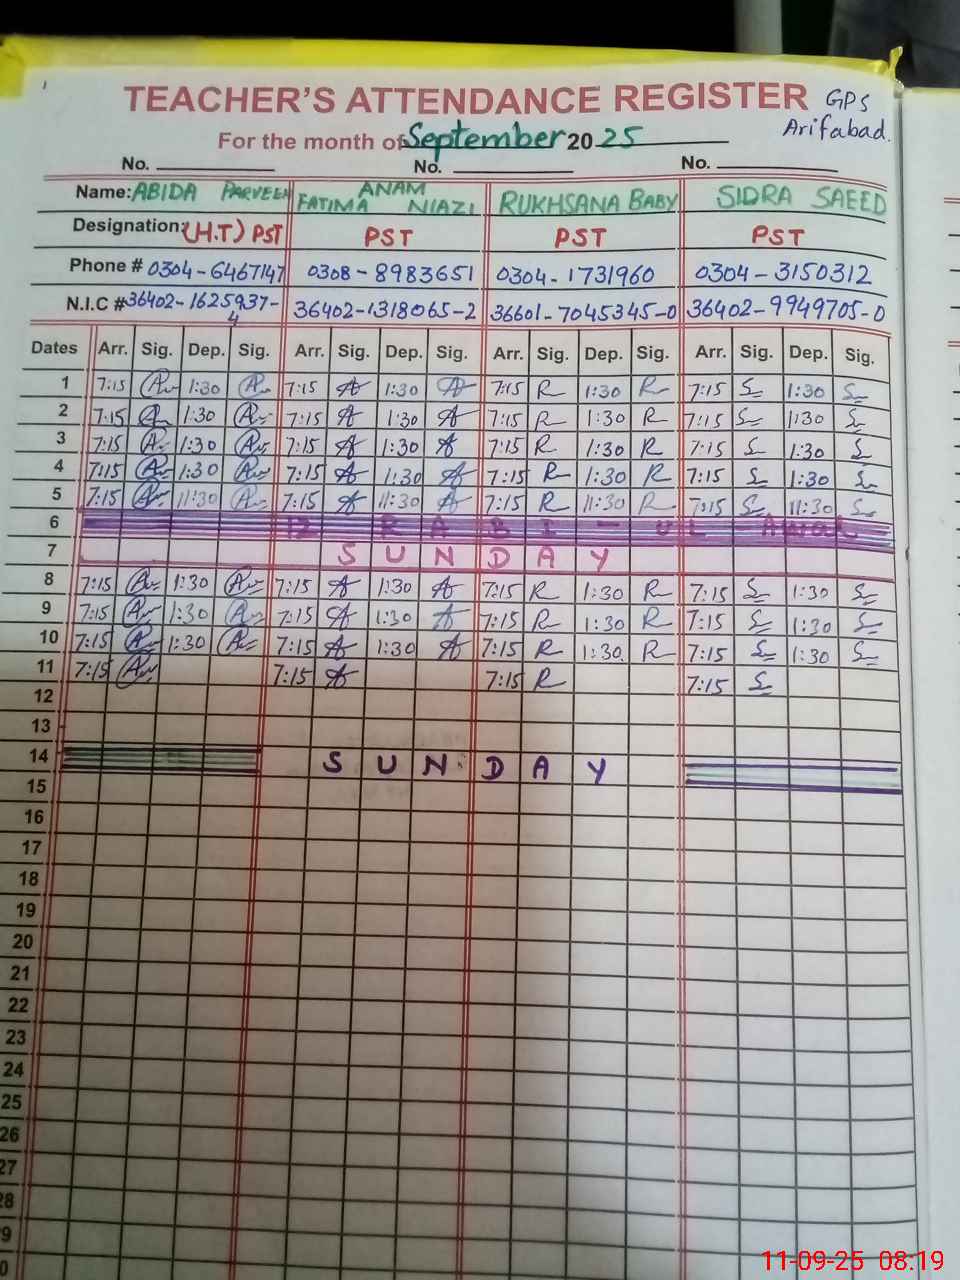 TEACHER'S ATTENDANCE REGISTER
GPS
Arifabad.
For the month of September 2025
No. No. No.
Name: ABIDA PARVEEN ANAM FATIMA NIAZI RUKHSANA BABY SIDRA SAEED
Designation: (H.T) PST PST PST PST
Phone # 0304-6467147 0308-8983651 0304-1731960 0304-3150312
N.I.C # 36402-1625937-4 36402-1318065-2 36601-7045345-0 36402-9949705-0
Dates Arr. Sig. Dep. Sig. Arr. Sig. Dep. Sig. Arr. Sig. Dep. Sig. Arr. Sig. Dep. Sig.
1 7:15 1:30 7:15 A 1:30 A 7:15 R 1:30 R 7:15 S 1:30 S
2 7:15 1:30 7:15 A 1:30 A 7:15 R 1:30 R 7:15 S 1:30 S
3 7:15 1:30 7:15 A 1:30 A 7:15 R 1:30 R 7:15 S 1:30 S
4 7:15 1:30 7:15 A 1:30 A 7:15 R 1:30 R 7:15 S 1:30 S
5 7:15 11:30 7:15 A 11:30 A 7:15 R 11:30 R 7:15 S 11:30 S
6 12 RABI-UL Awal
7 SUNDAY
8 7:15 1:30 7:15 A 1:30 A 7:15 R 1:30 R 7:15 S 1:30 S
9 7:15 1:30 7:15 A 1:30 A 7:15 R 1:30 R 7:15 S 1:30 S
10 7:15 1:30 7:15 A 1:30 A 7:15 R 1:30 R 7:15 S 1:30 S
11 7:15 7:15 A 7:15 R 7:15 S
12
13
14 SUNDAY
15
16
17
18
19
20
21
22
23
24
25
26
27
28
29
11-09-25 08:19